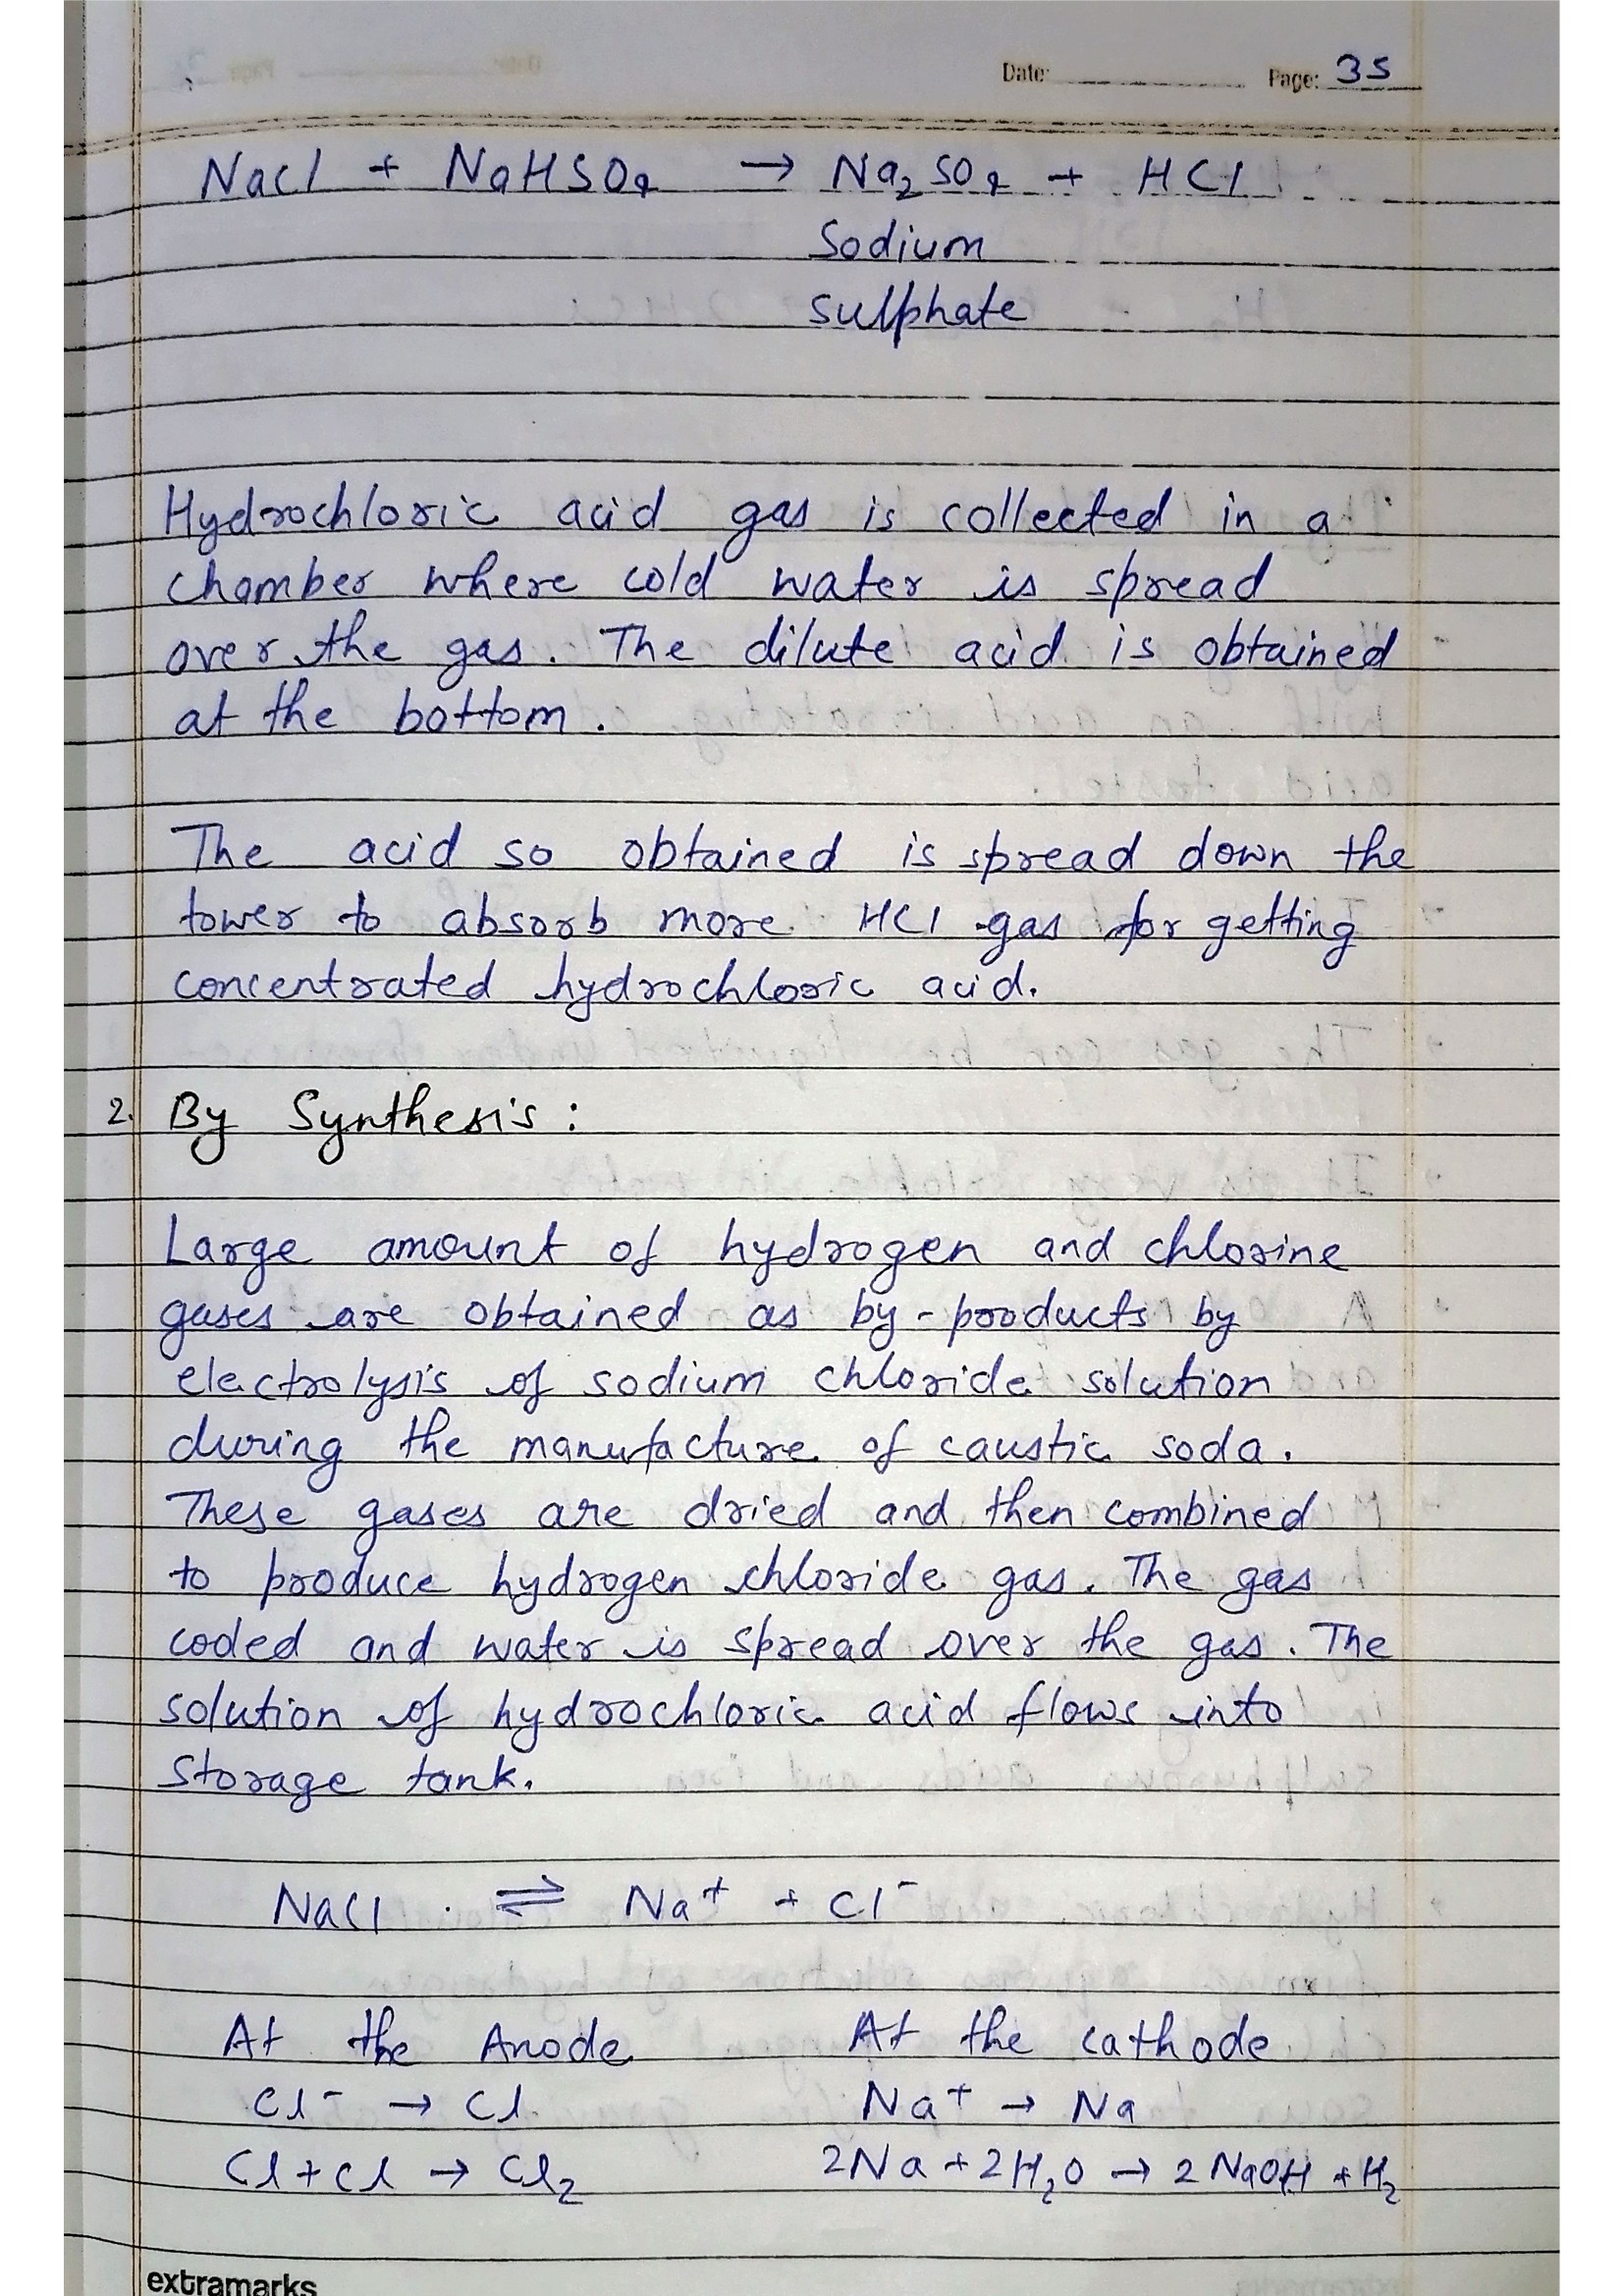 Date: Page: 35
NaCl + NaHSO4 → Na2SO4 + HCl
Sodium
sulphate
Hydrochloric acid gas is collected in a
chamber where cold water is spread
over the gas. The dilute acid is obtained
at the bottom.
The acid so obtained is spread down the
tower to absorb more HCl gas for getting
concentrated hydrochloric acid.
2. By Synthesis:
Large amount of hydrogen and chlorine
gases are obtained as by-products by
electrolysis of sodium chloride solution
during the manufacture of caustic soda.
These gases are dried and then combined
to produce hydrogen chloride gas. The gas
coded and water is spread over the gas. The
solution of hydrochloric acid flows into
storage tank.
NaCl ⇌ Na⁺ + Cl⁻
At the Anode At the cathode
Cl⁻ → Cl Na⁺ → Na
Cl + Cl → Cl2 2Na + 2H2O → 2NaOH + H2
extramarks